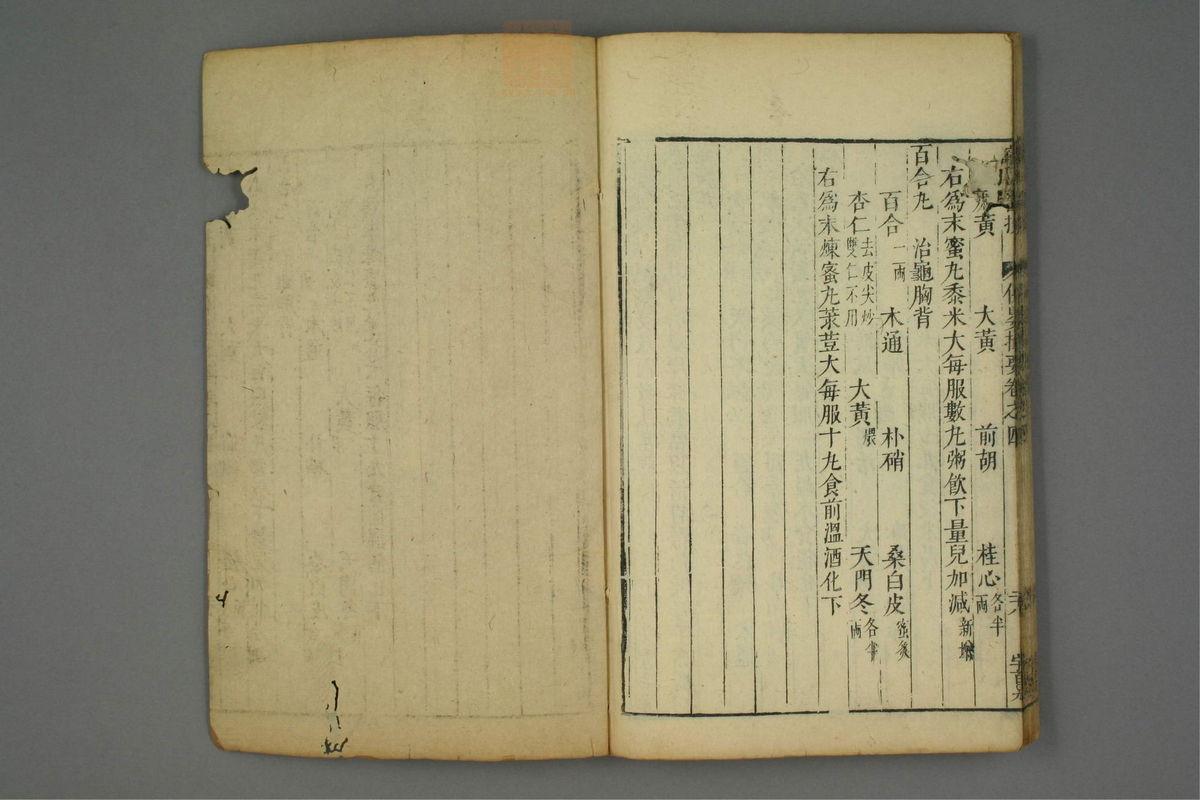 黃　大黃　前胡　桂心各半兩
右爲末蜜丸黍米大每服數丸粥飮下量兒加減新增
百合丸　治龜胸背
百合一兩　木通　朴硝　桑白皮蜜炙
杏仁去皮尖炒雙仁不用　大黃煨　天門冬各半兩
右爲末煉蜜丸菉荳大每服十丸食前溫酒化下